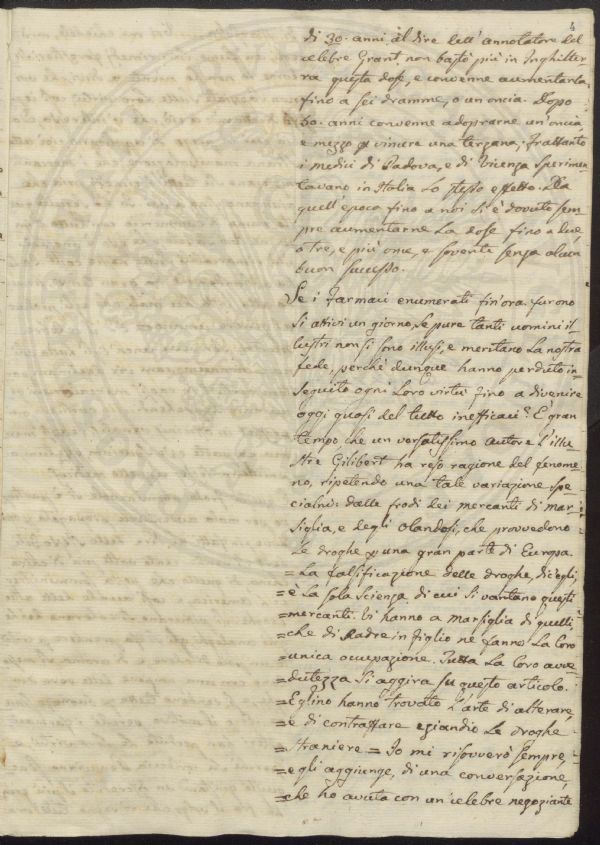 4
di 30. anni, al dire dell'annotatore del
celebre Grant, non bastò più in Inghilter-
ra questa dose, e convenne aumentarla
fino a sei dramme, o un oncia. Dopo
50. anni convenne adoprarne un'oncia,
e mezzo p vincere una terzana; frattanto
i medici di Padova, e di Vicenza sperimen-
tavano in Italia lo stesso effetto. Da
quell'epoca fino a noi si è dovuto sem-
pre aumentarne la dose fino a due,
o tre, e più once, e sovente senza alcun
buon successo.
Se i farmaci enumerati fin'ora furono
sì attivi un giorno, se pure tanti uomini il-
lustri non si sono illusi, e meritano la nostra
fede, perchè dunque hanno perduto in
seguito ogni loro virtù fino a divenire
oggi quasi del tutto inefficaci? È gran
tempo che un versatissimo autore l'illu-
stre Gilibert ha reso ragione del fenome-
no, ripetendo una tale variazione spe-
cialmè: dalle frodi dei mercanti di Mar-
siglia, e degli Olandesi, che provvedono
le droghe p una gran parte di Europa.
= La falsificazione delle droghe, dic'egli,
= è la sola scienza di cui si vantano questi
= mercanti. Vi hanno a Marsiglia di quelli
= che di Padre in figlio ne fanno la loro
= unica occupazione. Tutta la loro avve-
= dutezza si aggira su questo articolo.
= Eglino hanno trovato l'arte di alterare,
= e di contraffare eziandio le droghe
= straniere = Io mi risovverò sempre,
= egli aggiunge, di una conversazione,
= che ho avuta con un celebre negoziante